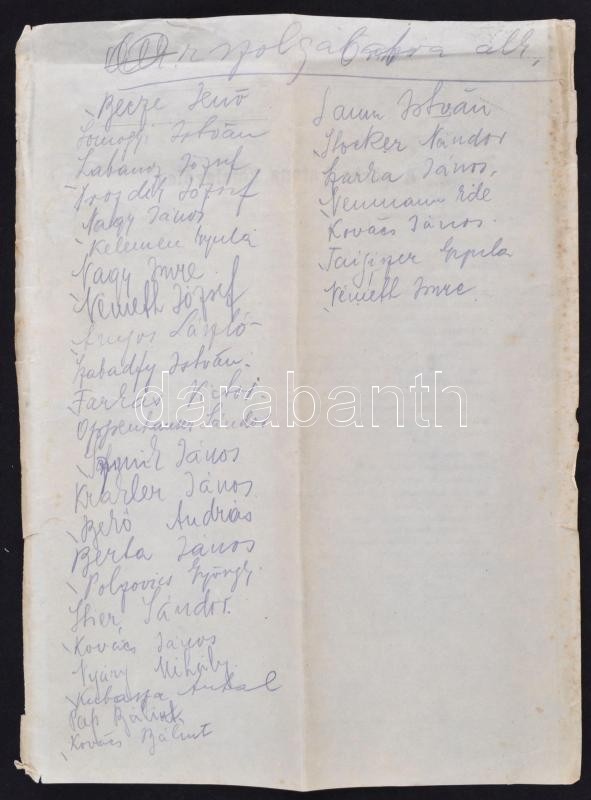 szolgálatra áll.
Becze Jenő
Somogyi István
Labancz József
József
Nagy János
Kelemen Gyula
Nagy Imre
Németh József
László
Szabadfy István.
Farkas
Sándor
János
Krázler János
Bező András
Berta János
Polpovics György.
Sther Sándor.
Kovács János
Nyáry Mihály.
Kubassa Antal
Pap Bálint
Kovács Bálint
István
Stocker Nándor
Szarka János,
Neumann Ede
Kovács János.
Gyula
Németh Imre.
darabanth